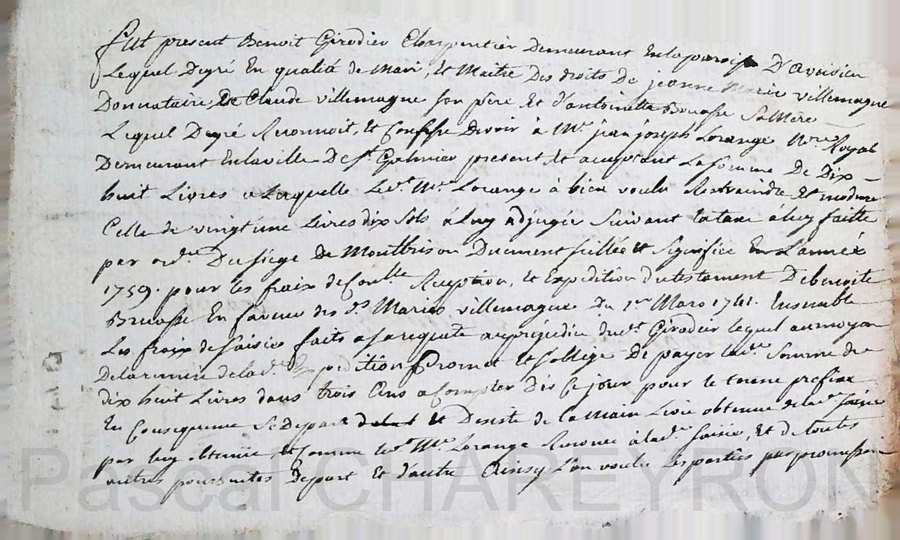 fut present Benoit Girodier Charpentier Demeurant En la paroisse D'aveisieu
Lequel Degré En qualité de Mari, et Maitre Des droits de jeanne Marie villemagne
Donnataire, De Claude villemagne son père Et d'antoinette Bruasse Sa Mère
Lequel Degré Reconnoit, et Confesse devoir à Mr. jean joseph Lorange Nre. Royal
Demeurant En la ville De St. Galmier present et acceptant La somme De Dix
huit Livres a Laquelle Led.t Mr. Lorange à bien voulu Restraindre Et moderer
Celle de vingt une Livres dix Sols à Luy adjugée Suivant la taxe à luy faitte
par ord.ce Du siege De Montbrison Duement scellée et Signifiée En L'année
1759. pour les fraix de Con.lle Reception, et Expedition du testament De benoite
Bruasse En faveur des d.s Mariés villemagne Du 1er Mars 1741. Ensemble
Les fraix de saisie faits a sa requete au prejudice dud.t Girodier lequel au moyen
De la remise de lad.e Expedition Promet Et s'oblige De payer lad.e Somme de
dix huit Livres dans trois Ans a Compter Dès Ce jour pour le terme prefixe
En Consequence Se Depart et Desiste de la Main Levée obtenue de lad.e saisie
par luy obtenue, et Comme led.t Mr. Lorange Renonce à lad.e saisie, Et de toutes
autres poursuites Depart Et d'autre Ainsy L'on voulu Les parties par promission
Pascal CHAREYRON